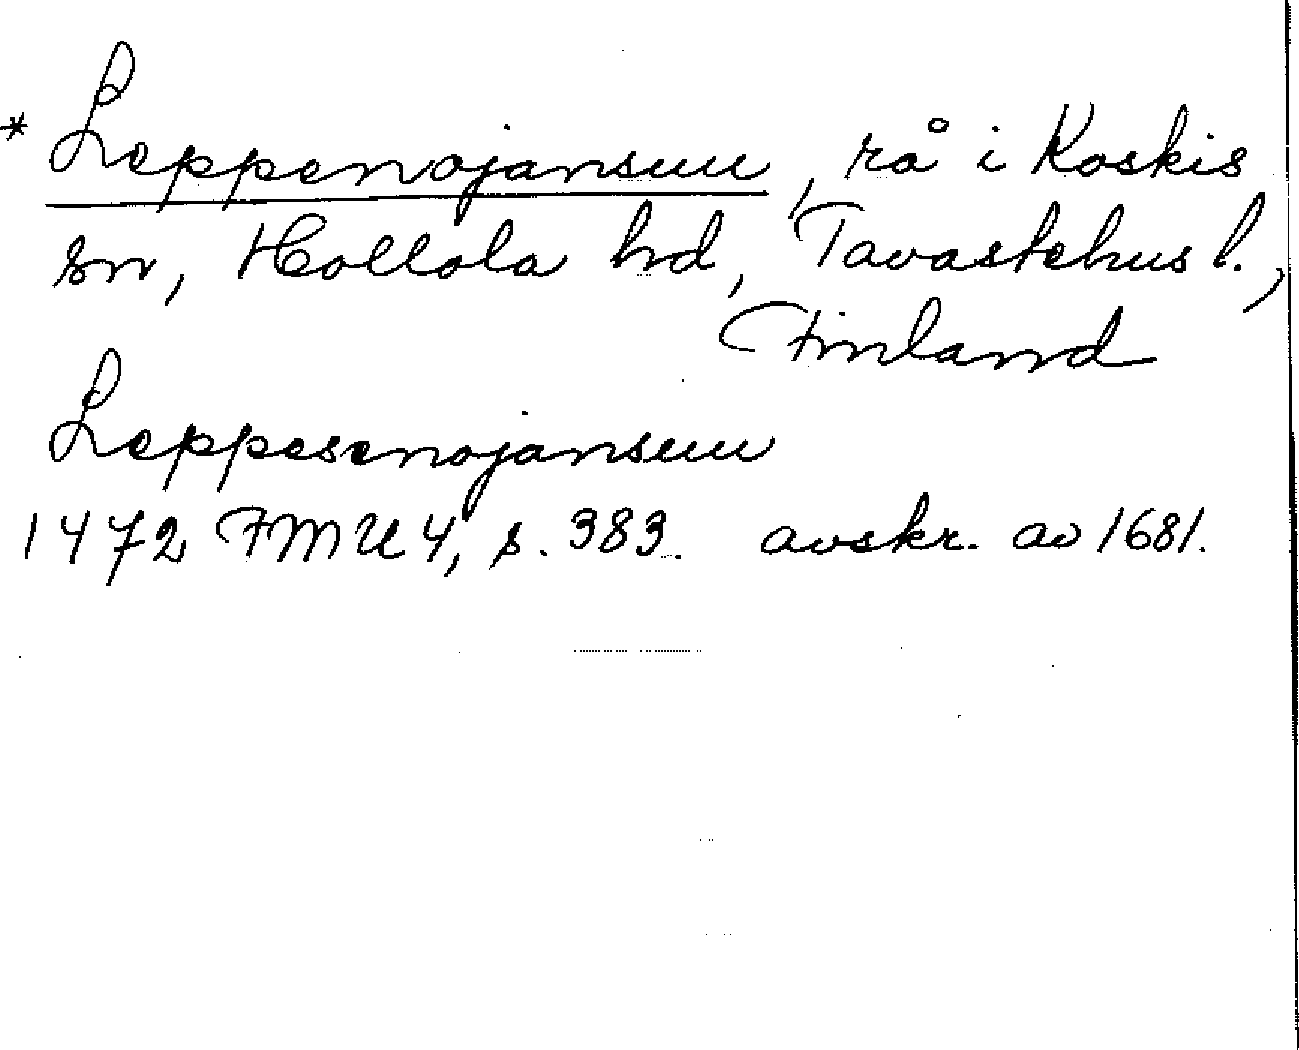 * Leppenojansuu, rå i Koskis
sn, Hollola hd, Tavastehus l.,
Finland
Leppesenojansuu
1472 FMU 4, s. 383. avskr. av 1681.